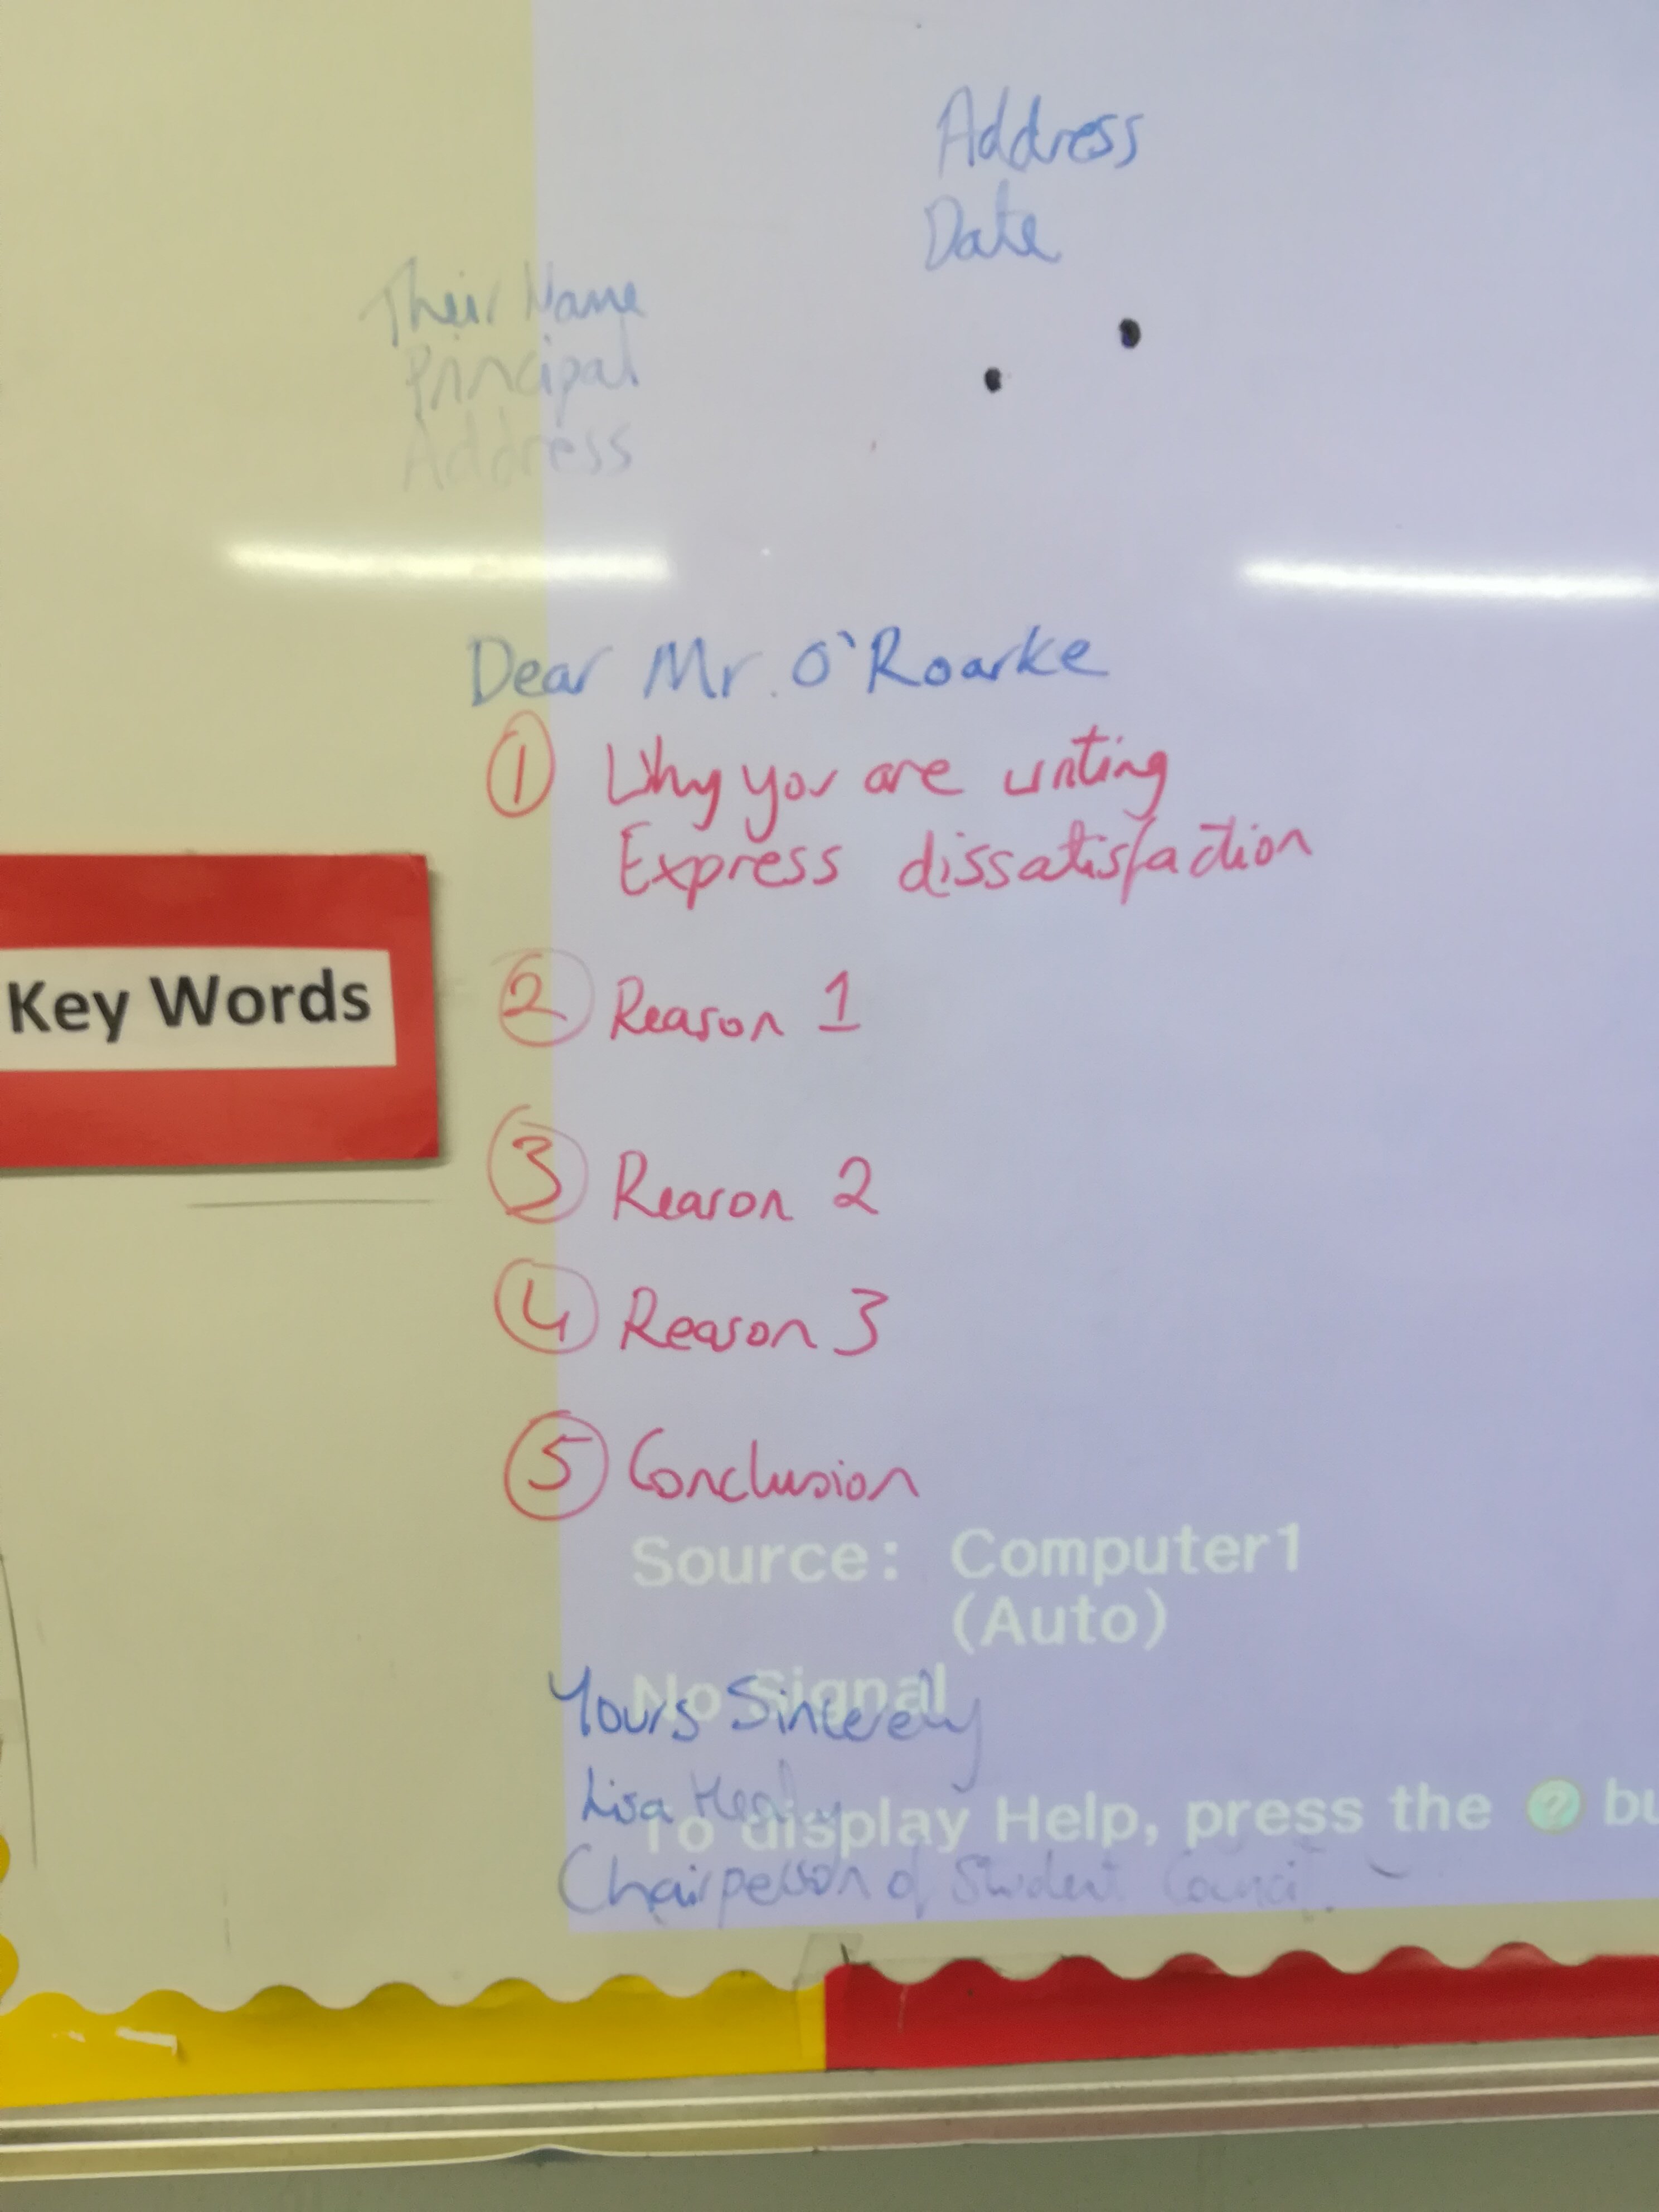 Address
Date
Their Name
Principal
Address
Dear Mr. O'Roarke
1 Why you are writing
Express dissatisfaction
Key Words
2 Reason 1
3 Reason 2
4 Reason 3
5 Conclusion
Source: Computer1
(Auto)
No Signal
Yours Sincerely
Lisa
To display Help, press the ? bu
Chairperson of Student Council